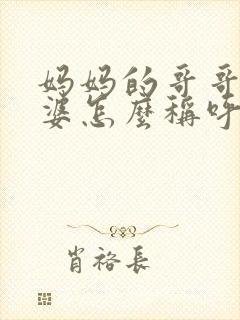 妈妈的哥哥
婆怎麼稱呼
肖裕長